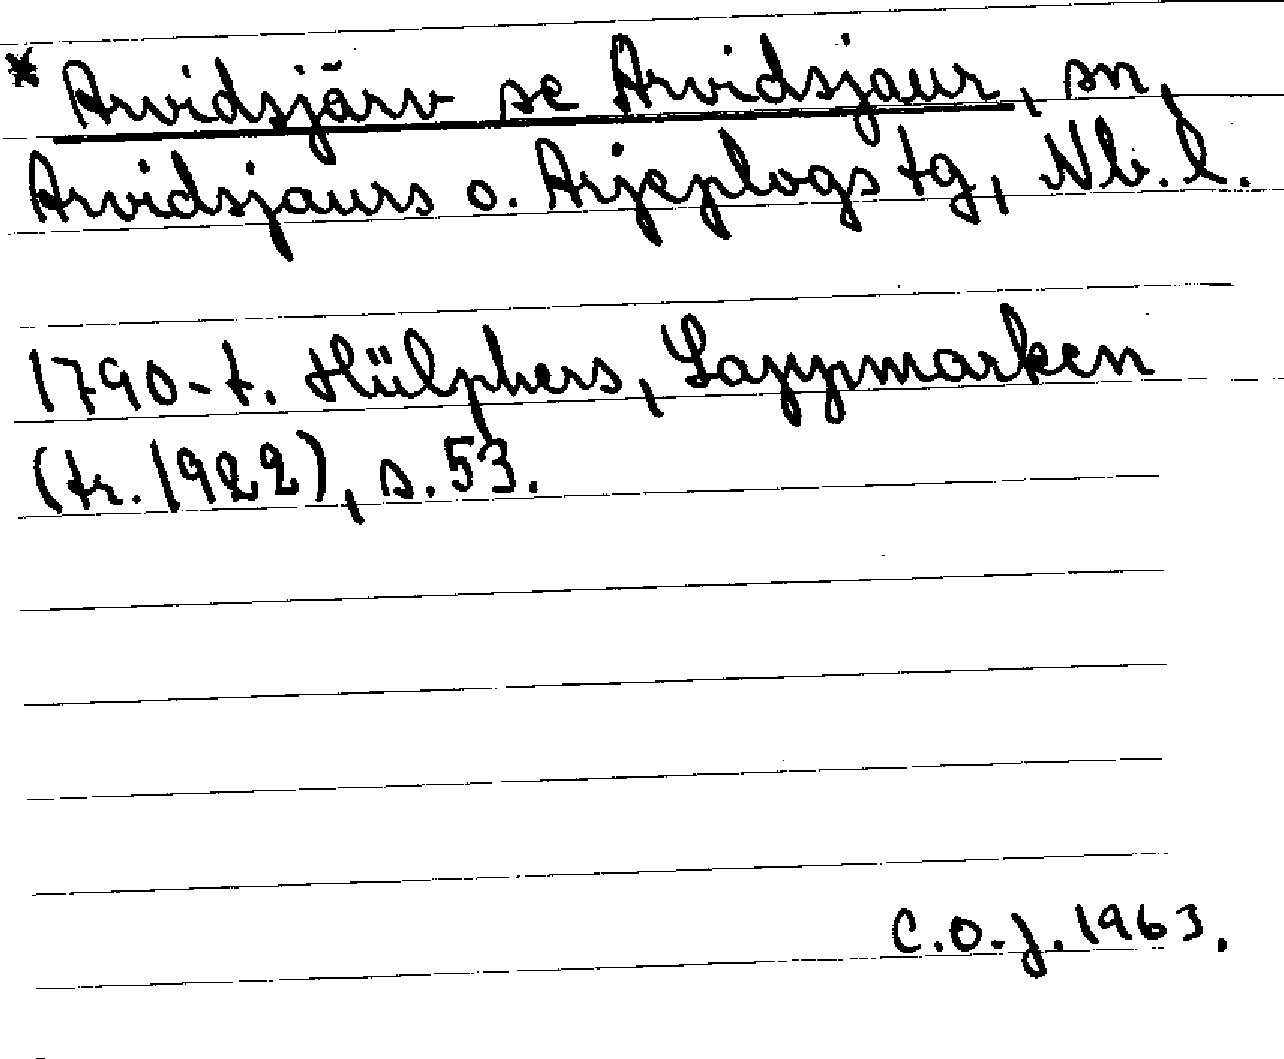 * Arvidsjärv se Arvidsjaur, sn,
Arvidsjaurs o. Arjeplogs tg, Nb. l.
1790-t. Hülphers, Lappmarken
(tr. 1922), s. 53.
C.O.J. 1963.